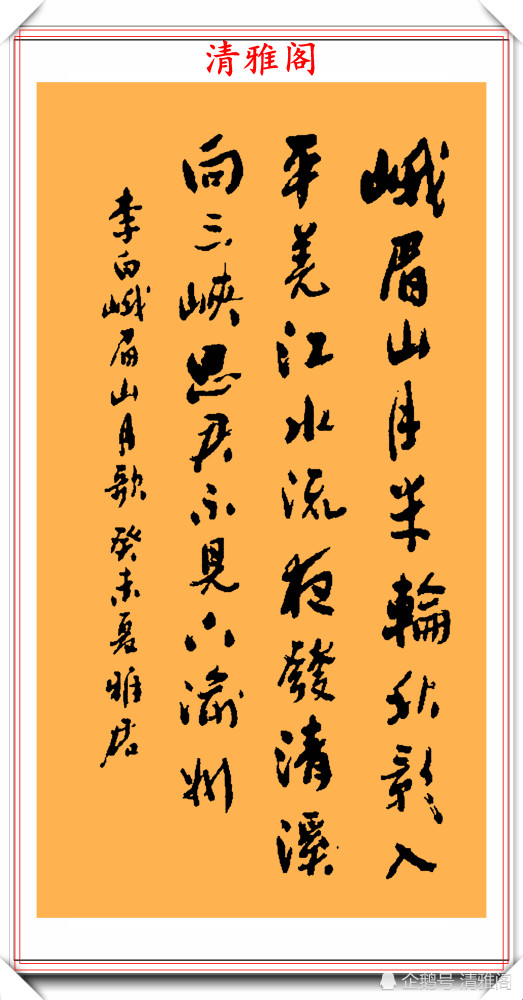 清雅阁
峨眉山月半輪秋影入
平羌江水流夜發清溪
向三峽思君不見下渝州
李白峨眉山月歌 癸未夏雅君
企鹅号 清雅阁